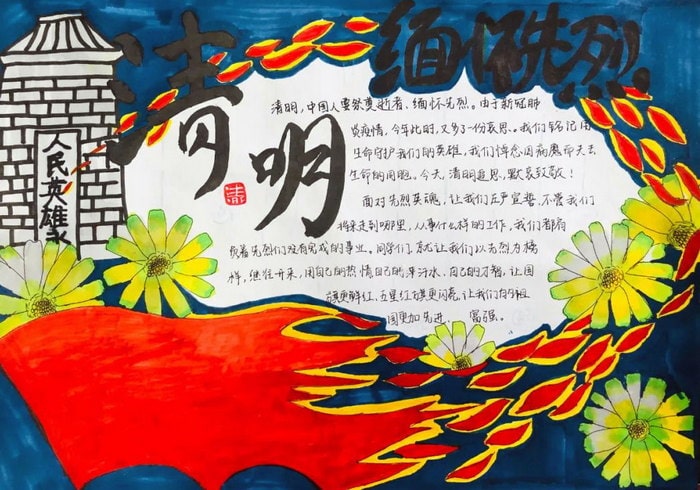 清明
缅怀先烈
人民英雄
清
清明，中国人要祭奠逝者、缅怀先烈。由于新冠肺
炎疫情，今年此时，又多了一份哀思。我们铭记用
生命守护我们的英雄，我们悼念因病患而失去
生命的同胞。今天，清明追思，默哀致敬！
面对先烈英魂，让我们庄严宣誓，不管我们
将来走到哪里，从事什么样的工作，我们都肩
负着先烈们没有完成的事业。同学们，就让我们以先烈为榜
样，继往开来，用自己的热情自己的汗水，自己的才智，让国
旗更鲜红，五星红旗更闪亮，让我们的祖
国更加先进、富强。